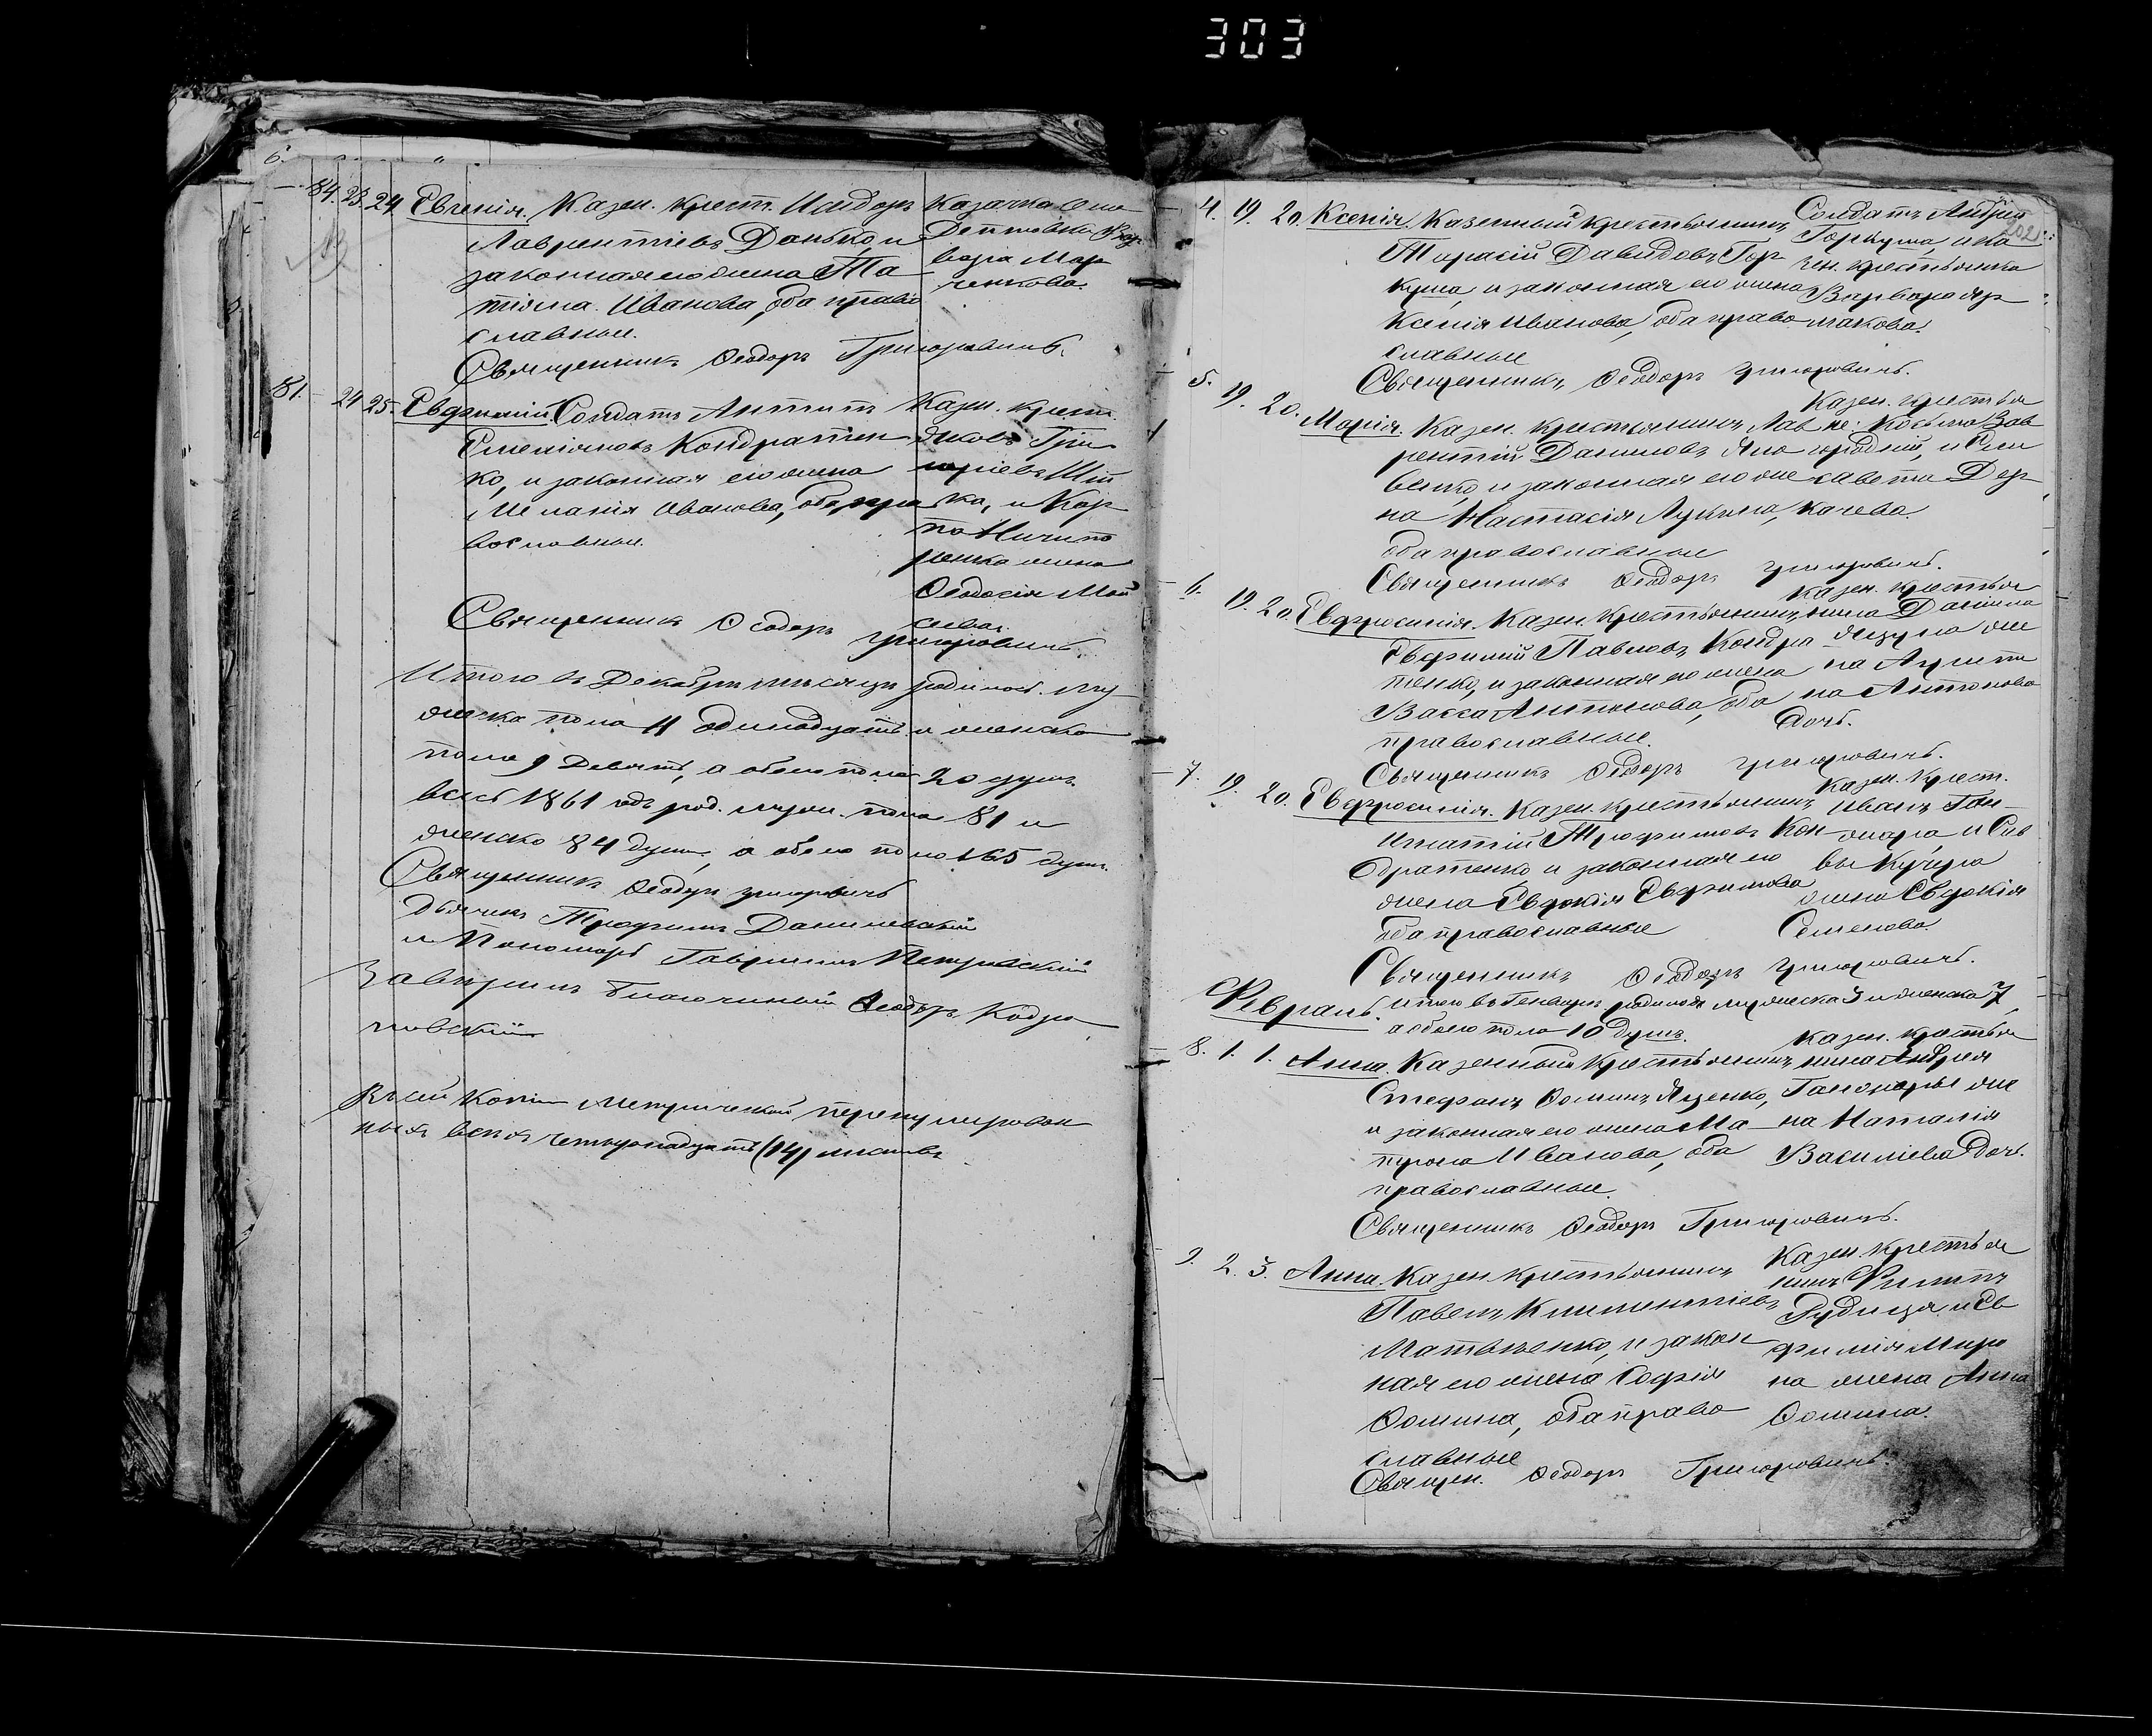 303
84. 23. 24. Евгенія. Казен. крест. Исидоръ
Лаврентіевъ Данько, и
законная его жена Та
тіяна Иванова, оба право
славные.
Казачка
вара Мар
ченкова.
Священникъ Ѳеодоръ Григоровичъ.
81. 24 25. Евфимій. Солдатъ Антипъ
Емеліяновъ Кондратен
ко, и законная его жена
Меланія Иванова, оба пра
вославные.
Казен. крест.
Яковъ Гри
горіевъ
ка, и Кар
па Ничипо
ренка жена
Ѳеодосія Мой
сеева.
Священникъ Ѳеодоръ Григоровичъ.
Итого въ Декабрѣ мѣсяцѣ родилось му
жеска пола 11 одинадцать и женска
пола 9 девять, а обего пола 20 душъ.
весь 1861 годъ род. муж. пола 81 и
женско 84 души, а обего пола 165 душъ.
Священникъ Ѳеодоръ Григоровичъ
Дьячекъ Трофимъ Данилевскій
и Пономарь Гавріилъ Петровскій
Завѣрилъ Благочинный Ѳеодоръ
Въ сей копіи метрической перенумерован
ныхъ всѣхъ четырнадцать (14) листовъ.
202
4. 19. 20. Ксенія. Казенный крестьянинъ
Тарасій Давидовъ Гор
куша, и законная его жена
Ксенія Иванова, оба право
славные
Солдатъ Андрей
Горкуша, и ка
зен. крестьянка
Варвара
Священникъ Ѳеодоръ Григоровичъ.
5. 19. 20. Марія. Казен. крестьянинъ Лав
рентій Даниловъ
венко, и законная его же
на Настасія Лукина,
оба православные
Казен. крестья
не: Косьма Зав
городній, и Ели
савета Дер
качева.
Священникъ Ѳеодоръ Григоровичъ.
6. 19. 20. Евфросинія. Казен. крестьянинъ
Евфимій Павловъ Кондра
тенко, и законная его жена
Васса Антонова, оба
православные.
Казен. крестья
нина Даніила
же
на
на Антонова
дочь.
Священникъ Ѳеодоръ Григоровичъ.
7. 19. 20. Евфросинія. Казен. крестьянинъ
Игнатій Трофимовъ Кон
дратенко и законная его
жена Евдокія Евфимова
оба православные
Казен. крест.
Иванъ Гон
жара, и Сав
вы Кучера
жена Евдокія
Семенова.
Священникъ Ѳеодоръ Григоровичъ.
Итого въ Генварѣ родилось мужеска 3 и женска 7,
а обоего пола 10 душъ.
Февраль.
8. 1. 1. Анна. Казенный крестьянинъ
Стефанъ Ѳоминъ Яценко,
и законная его жена Ма
трона Иванова, оба
православные.
Казен. крестья
нина Андрея
Гончара же
на Наталія
Василіева дочь.
Священникъ Ѳеодоръ Григоровичъ.
9. 2. 3. Анна. Казен. крестьянинъ
Павелъ Климентіевъ
Матвѣенко, и закон
ная его жена Софія
Ѳомина, оба право
славные
Казен. крестья
нинъ Филипъ
Рудица, и Ев
фимія Миро
на жена Анна
Ѳомина.
Священ. Ѳеодоръ Григоровичъ.